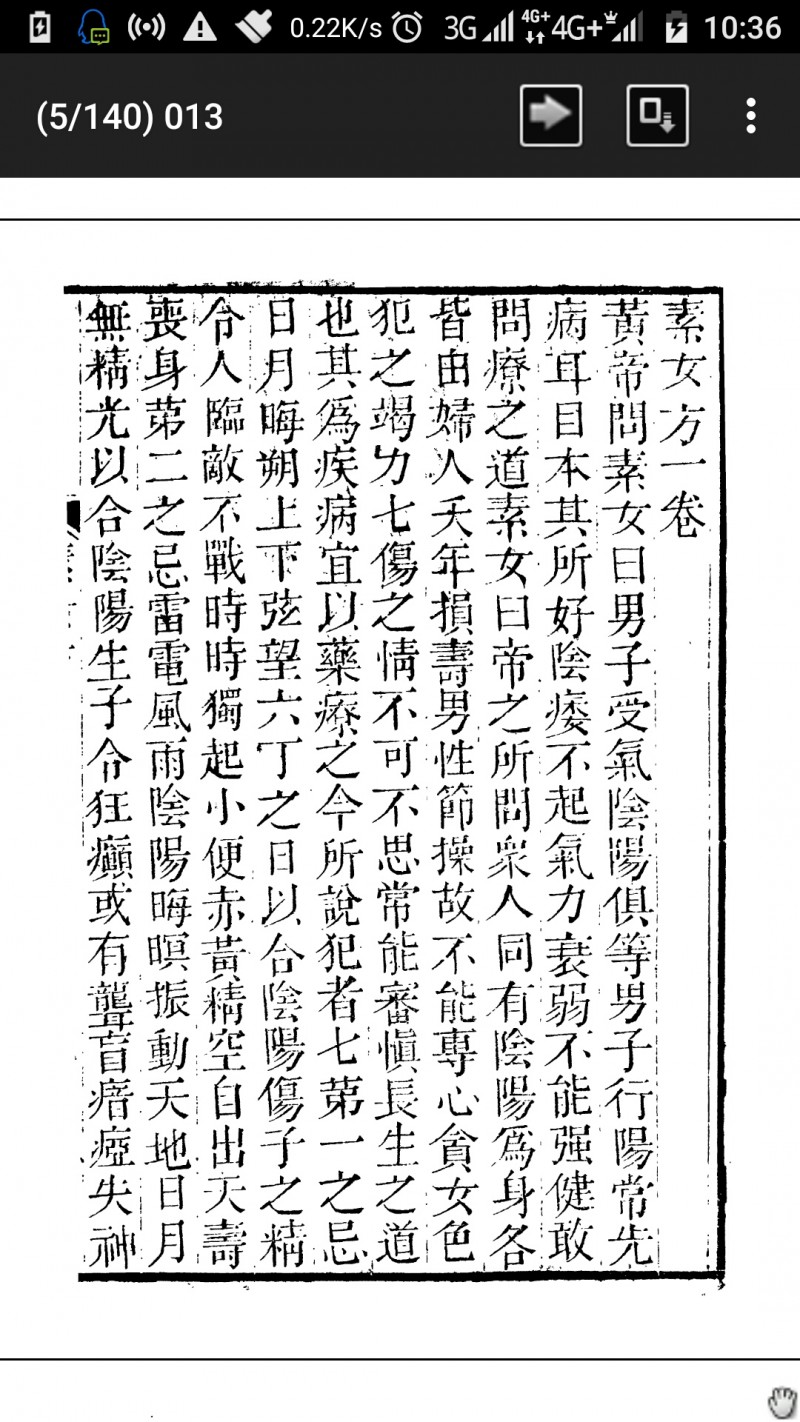 0.22K/s 3G 4G+ 4G+ 10:36
(5/140) 013
素女方一卷
黃帝問素女曰男子受氣陰陽俱等男子行陽常先
病耳目本其所好陰痿不起氣力衰弱不能强健敢
問療之道素女曰帝之所問衆人同有陰陽爲身各
皆由婦人夭年損壽男性節操故不能專心貪女色
犯之竭力七傷之情不可不思常能審愼長生之道
也其爲疾病宜以藥療之今所說犯者七第一之忌
日月晦朔上下弦望六丁之日以合陰陽傷子之精
令人臨敵不戰時時獨起小便赤黃精空自出夭壽
喪身第二之忌雷電風雨陰陽晦暝振動天地日月
無精光以合陰陽生子令狂癲或有聾盲瘖瘂失神